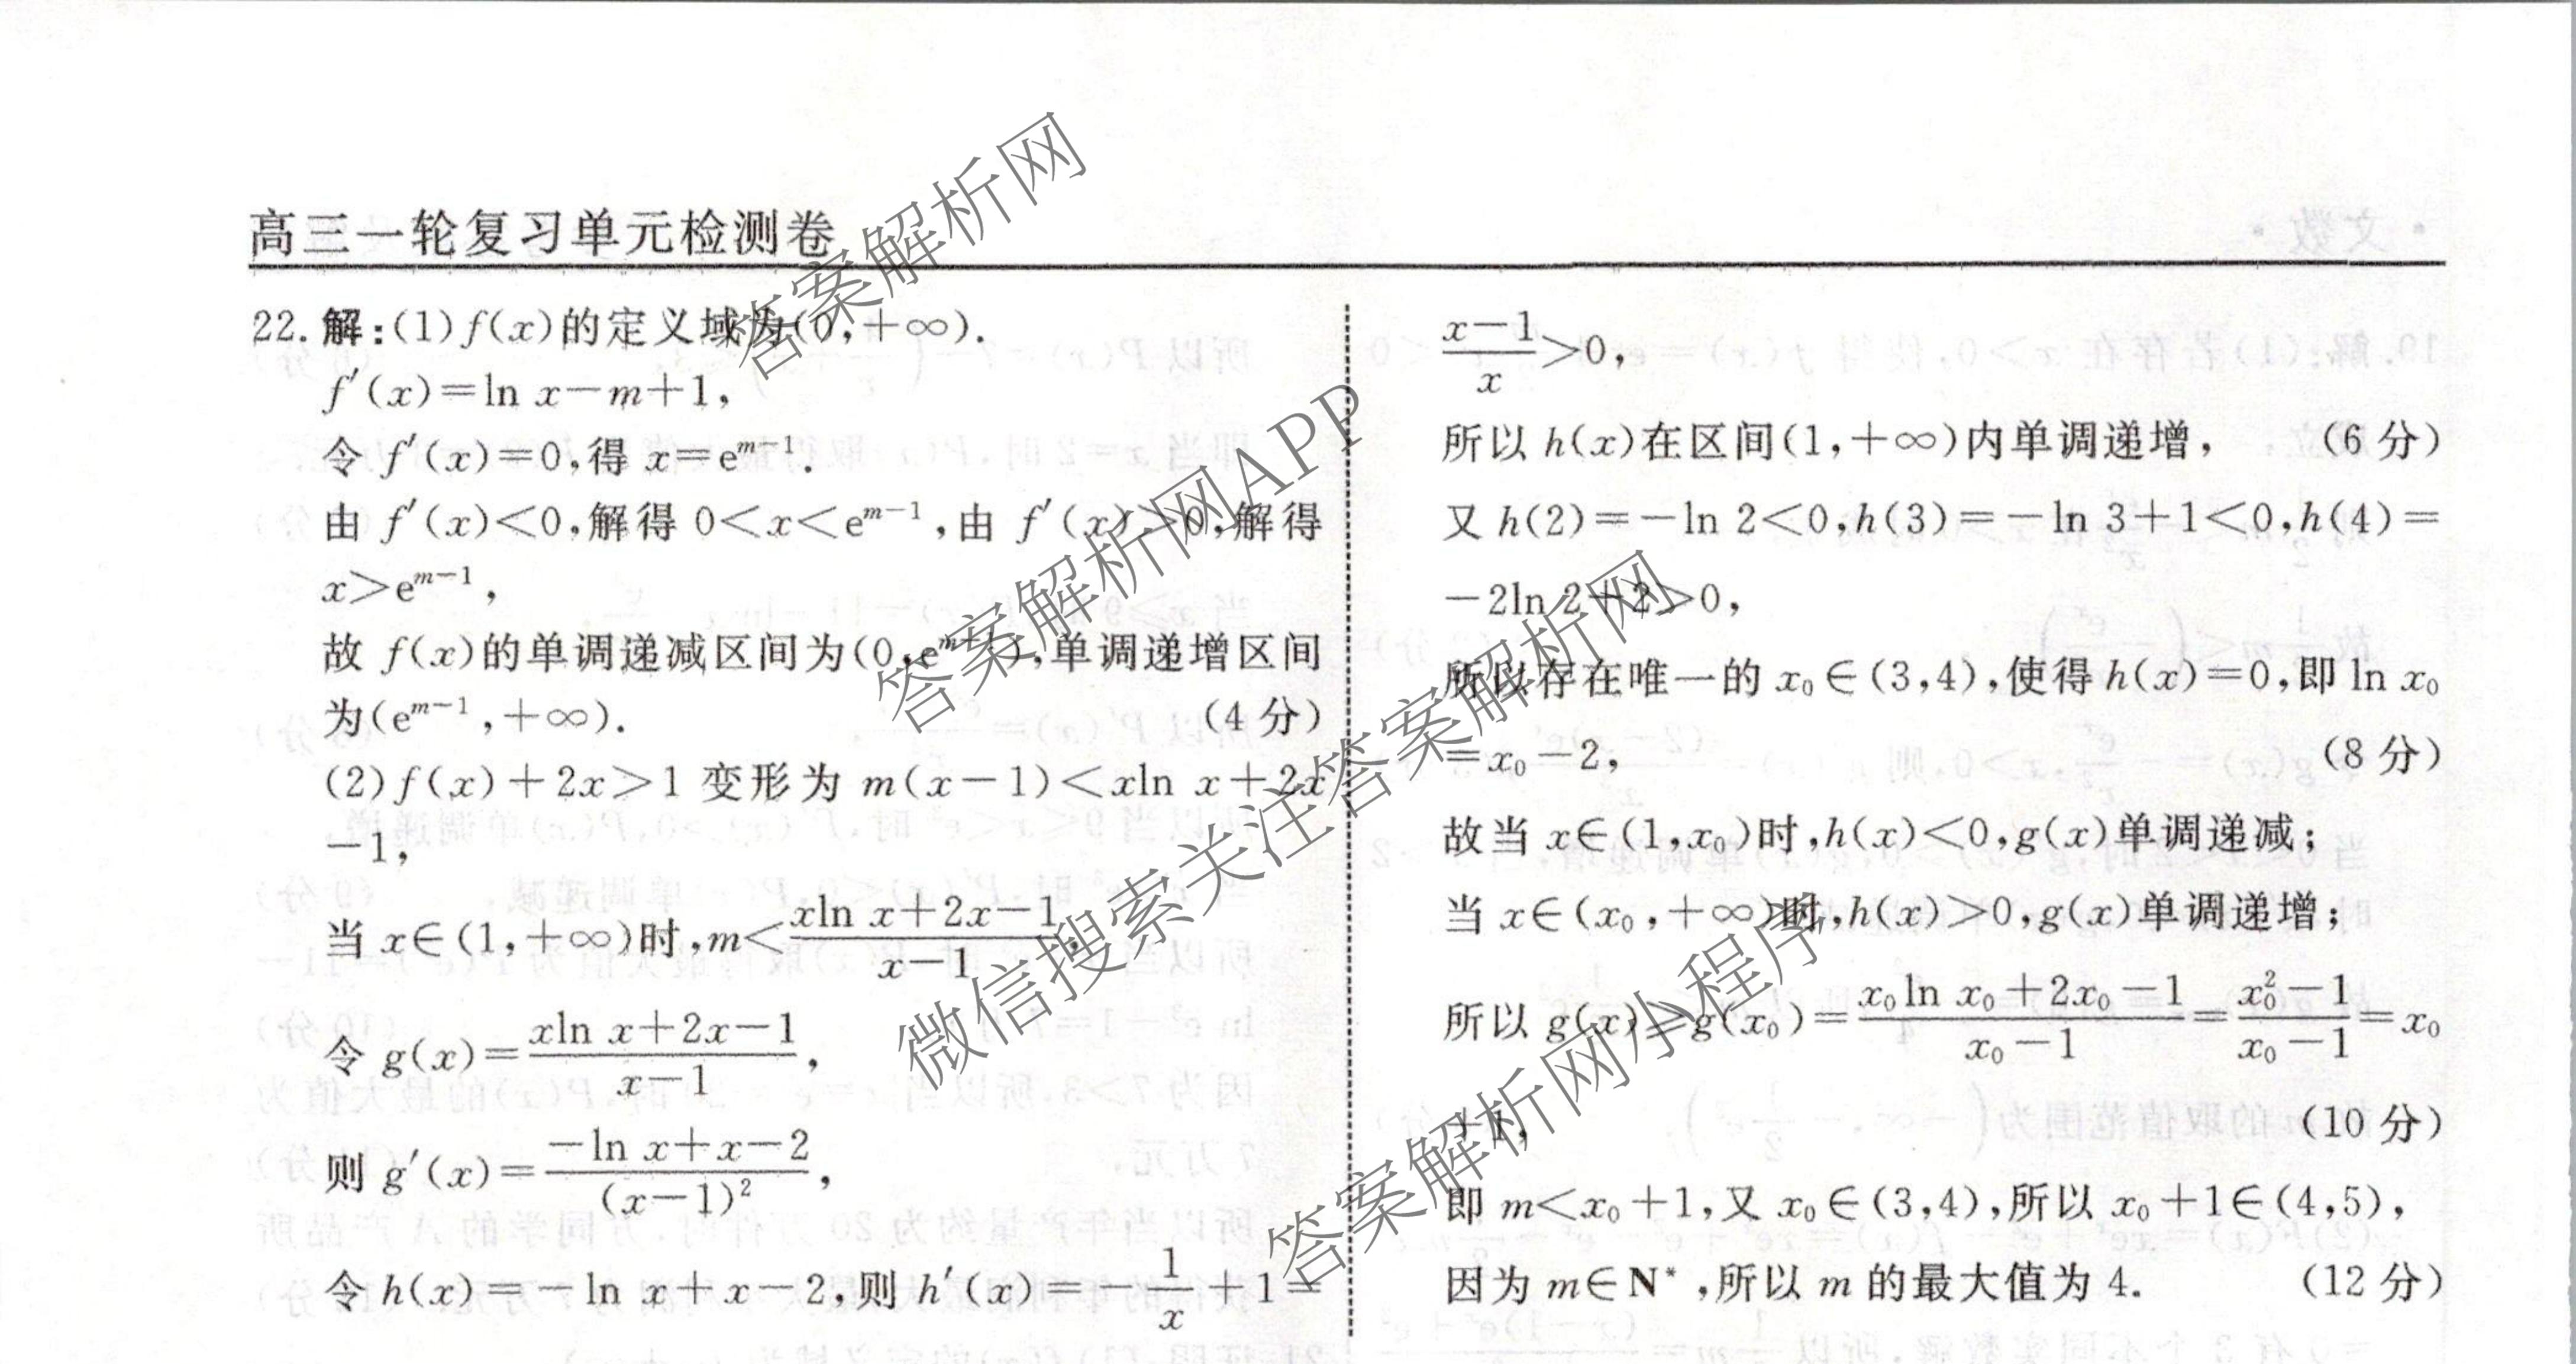 高三一轮复习单元检测卷
22.解:(1)f(x)的定义域为(0,+∞).
f′(x)=ln x-m+1,
令 f′(x)=0,得 x=e^{m-1}.
由 f′(x)<0,解得 0<x<e^{m-1},由 f′(x)>0,解得
x>e^{m-1},
故 f(x)的单调递减区间为(0,e^{m-1}),单调递增区间
为(e^{m-1},+∞). (4 分)
(2)f(x)+2x>1 变形为 m(x-1)<xln x+2x
-1,
当 x∈(1,+∞)时,m<\frac{xln x+2x-1}{x-1},
令 g(x)=\frac{xln x+2x-1}{x-1},
则 g′(x)=\frac{-ln x+x-2}{(x-1)^2},
令 h(x)=-ln x+x-2,则 h′(x)=-\frac{1}{x}+1=
\frac{x-1}{x}>0,
所以 h(x)在区间(1,+∞)内单调递增, (6 分)
又 h(2)=-ln 2<0,h(3)=-ln 3+1<0,h(4)=
-2ln 2+2>0,
所以存在唯一的 x_0∈(3,4),使得 h(x)=0,即 ln x_0
=x_0-2, (8 分)
故当 x∈(1,x_0)时,h(x)<0,g(x)单调递减;
当 x∈(x_0,+∞)时,h(x)>0,g(x)单调递增;
所以 g(x)≥g(x_0)=\frac{x_0 ln x_0+2x_0-1}{x_0-1}=\frac{x_0^2-1}{x_0-1}=x_0
+1, (10 分)
即 m<x_0+1,又 x_0∈(3,4),所以 x_0+1∈(4,5),
因为 m∈N*,所以 m 的最大值为 4. (12 分)
答案解析网
答案解析网APP
微信搜索关注答案解析网
答案解析网小程序